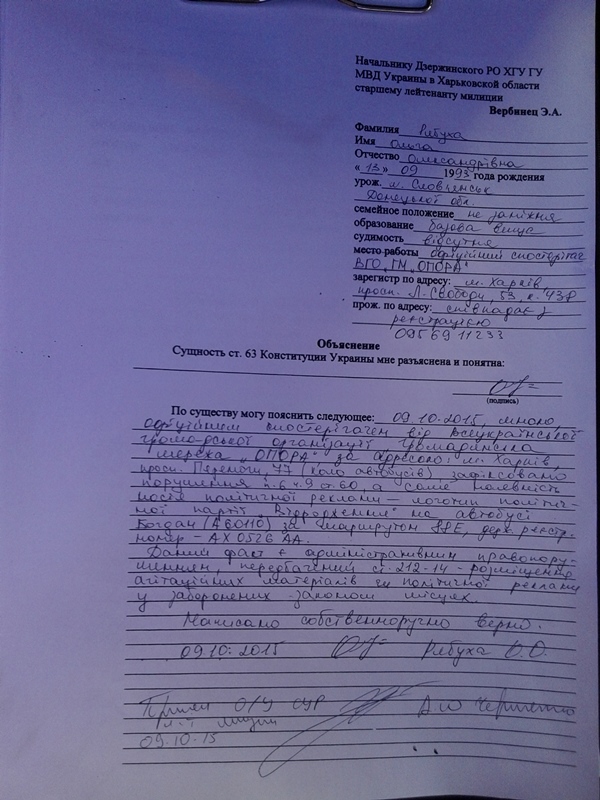 Начальнику Дзержинского РО ХГУ ГУ
МВД Украины в Харьковской области
старшему лейтенанту милиции
Вербинец Э.А.
Фамилия Рябуха
Имя Ольга
Отчество Олександрівна
« 13 » 09 1993 года рождения
урож. м. Словянськ
Донецької обл.
семейное положение не заміжня
образование базова вища
судимость відсутня
место работы офіційний спостерігач
ВГО „ГМ „ОПОРА"
зарегистр по адресу: м. Харків,
просп. Л. Свободи, 53, к. 438
прож. по адресу: співпадає з
реєстрацією
0956911233
Объяснение
Сущность ст. 63 Конституции Украины мне разъяснена и понятна:
(подпись)
По существу могу пояснить следующее: 09.10.2015, мною,
офіційним спостерігачем від Всеукраїнської
громадської організації Громадянська
мережа „ОПОРА" за адресою: м. Харків,
просп. Перемоги, 77 (коло автобусів) зафіксовано
порушення п.6 ч.9 ст.60, а саме наявність
носія політичної реклами — логотип політич-
ної партії „Відродження" на автобусі
Богдан (А60110) за маршрутом 77Е, держ. реєстр.
номер – АХ 0526 АА.
Даний факт є адміністративним правопору-
шенням, передбачений ст. 212-14 – розміщення
агітаційних матеріалів чи політичної реклами
у заборонених законом місцях.
Написано собственноручно верно.
09.10.2015 Рябуха О.О.
Принял О/У СУР
л-т милиции
09.10.15